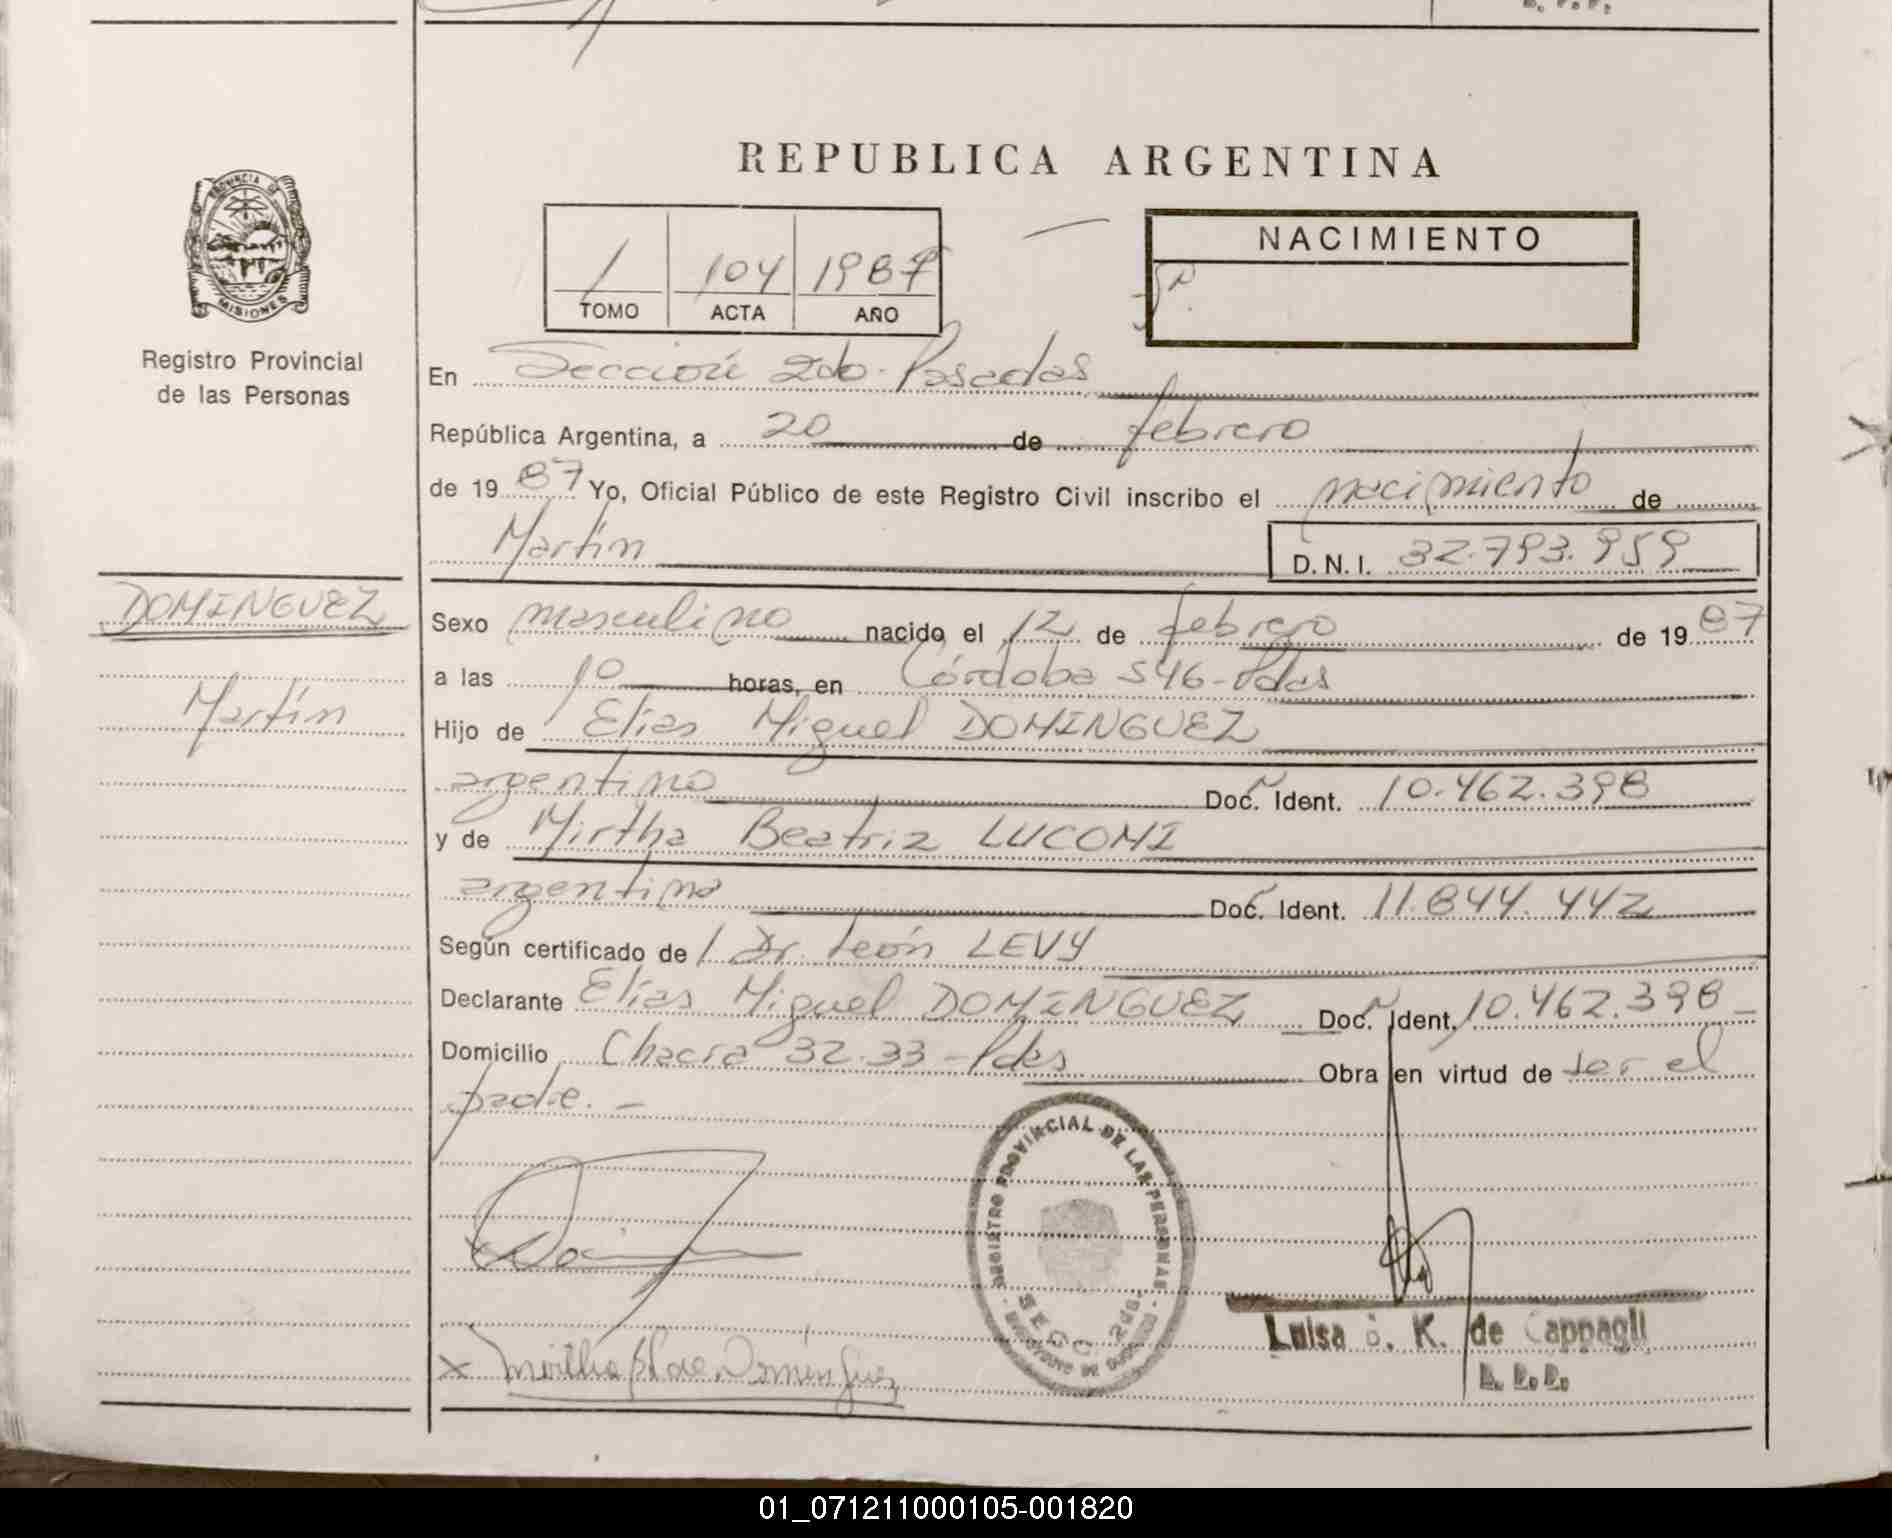 REPUBLICA ARGENTINA
PROVINCIA DE
MISIONES
Registro Provincial
de las Personas
1 104 1987
TOMO ACTA AÑO
NACIMIENTO
En Sección 2do. Posadas
República Argentina, a 20 de febrero
de 19 87 Yo, Oficial Público de este Registro Civil inscribo el nacimiento de
Martín D.N.I. 32.793.959
DOMINGUEZ
Martín
Sexo masculino nacido el 12 de febrero de 19 87
a las 10 horas, en Córdoba 546-Pdas
Hijo de Elías Miguel DOMINGUEZ
argentino Doc. Ident. 10.462.398
y de Mirtha Beatriz LUCOMI
argentina Doc. Ident. 11.844.442
Según certificado de Dr. León LEVY
Declarante Elías Miguel DOMINGUEZ Doc. Ident. 10.462.398
Domicilio Chacra 32-33-Pdas Obra en virtud de ser el
padre.-
REGISTRO PROVINCIAL DE LAS PERSONAS
SECC. 2da.
Luisa K. de Cappagli
Mirtha de Domínguez
01_071211000105-001820